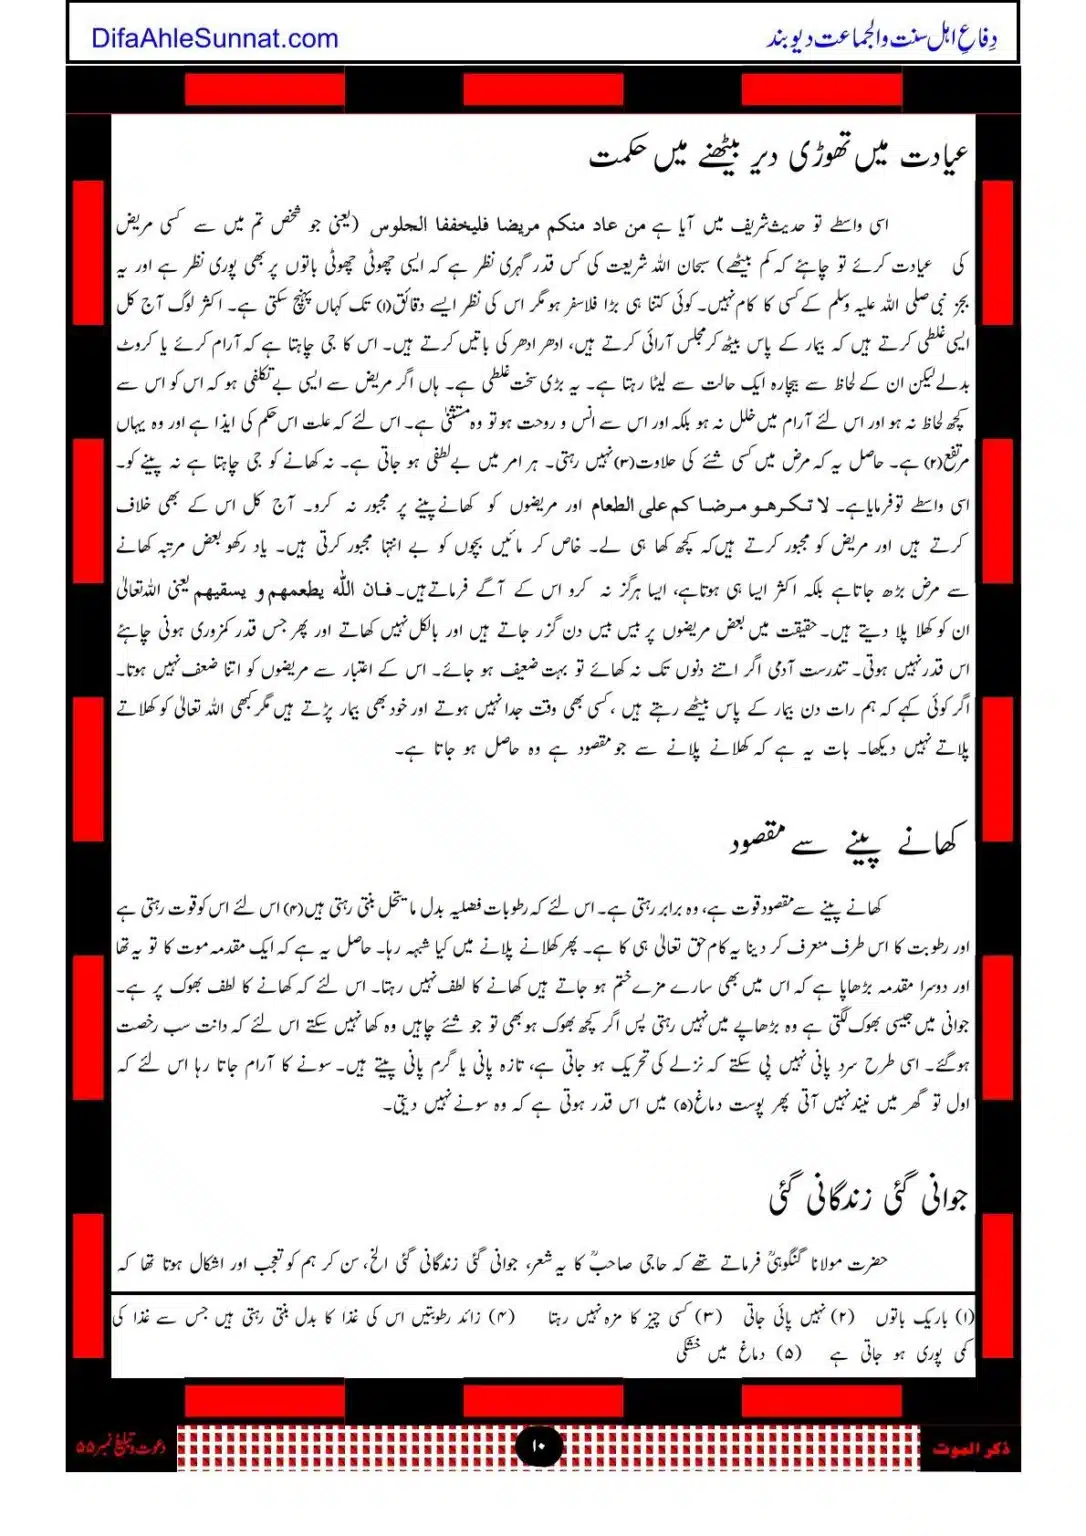 DifaAhleSunnat.com
دِفاعِ اہل سنت والجماعت دیوبند
عیادت میں تھوڑی دیر بیٹھنے میں حکمت
اسی واسطے تو حدیث شریف میں آیا ہے من عاد منکم مریضا فلیخففا الجلوس (یعنی جو شخص تم میں سے کسی مریض
کی عیادت کرئے تو چاہئے کہ کم بیٹھے) سبحان اللہ شریعت کی کس قدر گہری نظر ہے کہ ایسی چھوٹی چھوٹی باتوں پر بھی پوری نظر ہے اور یہ
بجز نبی صلی اللہ علیہ وسلم کے کسی کا کام نہیں۔ کوئی کتنا ہی بڑا فلاسفر ہو مگر اس کی نظر ایسے دقائق(۱) تک کہاں پہنچ سکتی ہے۔ اکثر لوگ آج کل
ایسی غلطی کرتے ہیں کہ بیمار کے پاس بیٹھ کر مجلس آرائی کرتے ہیں، ادھر ادھر کی باتیں کرتے ہیں۔ اس کا جی چاہتا ہے کہ آرام کرئے یا کروٹ
بدلے لیکن ان کے لحاظ سے بیچارہ ایک حالت سے لیٹا رہتا ہے۔ یہ بڑی سخت غلطی ہے۔ ہاں اگر مریض سے ایسی بے تکلفی ہو کہ اس کو اس سے
کچھ لحاظ نہ ہو اور اس لئے آرام میں خلل نہ ہو بلکہ اور اس سے انس و روحت ہو تو وہ مستثنیٰ ہے۔ اس لئے کہ علت اس حکم کی ایذا ہے اور وہ یہاں
مرتفع(۲) ہے۔ حاصل یہ کہ مرض میں کسی شئے کی حلاوت(۳) نہیں رہتی۔ ہر امر میں بے لطفی ہو جاتی ہے۔ نہ کھانے کو جی چاہتا ہے نہ پینے کو۔
اسی واسطے تو فرمایا ہے۔ لا تکرھو مرضا کم علی الطعام اور مریضوں کو کھانے پینے پر مجبور نہ کرو۔ آج کل اس کے بھی خلاف
کرتے ہیں اور مریض کو مجبور کرتے ہیں کہ کچھ کھا ہی لے۔ خاص کر مائیں بچوں کو بے انتہا مجبور کرتی ہیں۔ یاد رکھو بعض مرتبہ کھانے
سے مرض بڑھ جاتا ہے بلکہ اکثر ایسا ہی ہوتا ہے، ایسا ہرگز نہ کرو اس کے آگے فرماتے ہیں۔ فان اللہ یطعمھم و یسقیھم یعنی اللہ تعالیٰ
ان کو کھلا پلا دیتے ہیں۔ حقیقت میں بعض مریضوں پر بیس بیس دن گزر جاتے ہیں اور بالکل نہیں کھاتے اور پھر جس قدر کمزوری ہونی چاہئے
اس قدر نہیں ہوتی۔ تندرست آدمی اگر اتنے دنوں تک نہ کھائے تو بہت ضعیف ہو جائے۔ اس کے اعتبار سے مریضوں کو اتنا ضعف نہیں ہوتا۔
اگر کوئی کہے کہ ہم رات دن بیمار کے پاس بیٹھے رہتے ہیں، کسی بھی وقت جدا نہیں ہوتے اور خود بھی بیمار پڑتے ہیں مگر کبھی اللہ تعالیٰ کو کھلاتے
پلاتے نہیں دیکھا۔ بات یہ ہے کہ کھلانے پلانے سے جو مقصود ہے وہ حاصل ہو جاتا ہے۔
کھانے پینے سے مقصود
کھانے پینے سے مقصود قوت ہے، وہ برابر رہتی ہے۔ اس لئے کہ رطوبات فضلیہ بدل ما یتحل بنتی رہتی ہیں(۴) اس لئے اس کو قوت رہتی ہے
اور رطوبت کا اس طرف متعرف کر دینا یہ کام حق تعالیٰ ہی کا ہے۔ پھر کھلانے پلانے میں کیا شبہہ رہا۔ حاصل یہ ہے کہ ایک مقدمہ موت کا تو یہ تھا
اور دوسرا مقدمہ بڑھاپا ہے کہ اس میں بھی سارے مزے ختم ہو جاتے ہیں کھانے کا لطف نہیں رہتا۔ اس لئے کہ کھانے کا لطف بھوک پر ہے۔
جوانی میں جیسی بھوک لگتی ہے وہ بڑھاپے میں نہیں رہتی پس اگر کچھ بھوک ہو بھی تو جو شئے چاہیں وہ کھا نہیں سکتے اس لئے کہ دانت سب رخصت
ہو گئے۔ اسی طرح سرد پانی نہیں پی سکتے کہ نزلے کی تحریک ہو جاتی ہے، تازہ پانی یا گرم پانی پیتے ہیں۔ سونے کا آرام جاتا رہا اس لئے کہ
اول تو گھر میں نیند نہیں آتی پھر یوست دماغ(۵) میں اس قدر ہوتی ہے کہ وہ سونے نہیں دیتی۔
جوانی گئی زندگانی گئی
حضرت مولانا گنگوہیؒ فرماتے تھے کہ حاجی صاحبؒ کا یہ شعر، جوانی گئی زندگانی گئی الخ، سن کر ہم کو تعجب اور اشکال ہوتا تھا کہ
(۱) باریک باتوں (۲) نہیں پائی جاتی (۳) کسی چیز کا مزہ نہیں رہتا (۴) زائد رطوبتیں اس کی غذا کا بدل بنتی رہتی ہیں جس سے غذا کی
کمی پوری ہو جاتی ہے (۵) دماغ میں خشکی
ذکر الموت
۱۰
دعوت و تبلیغ نمبر ۵۵